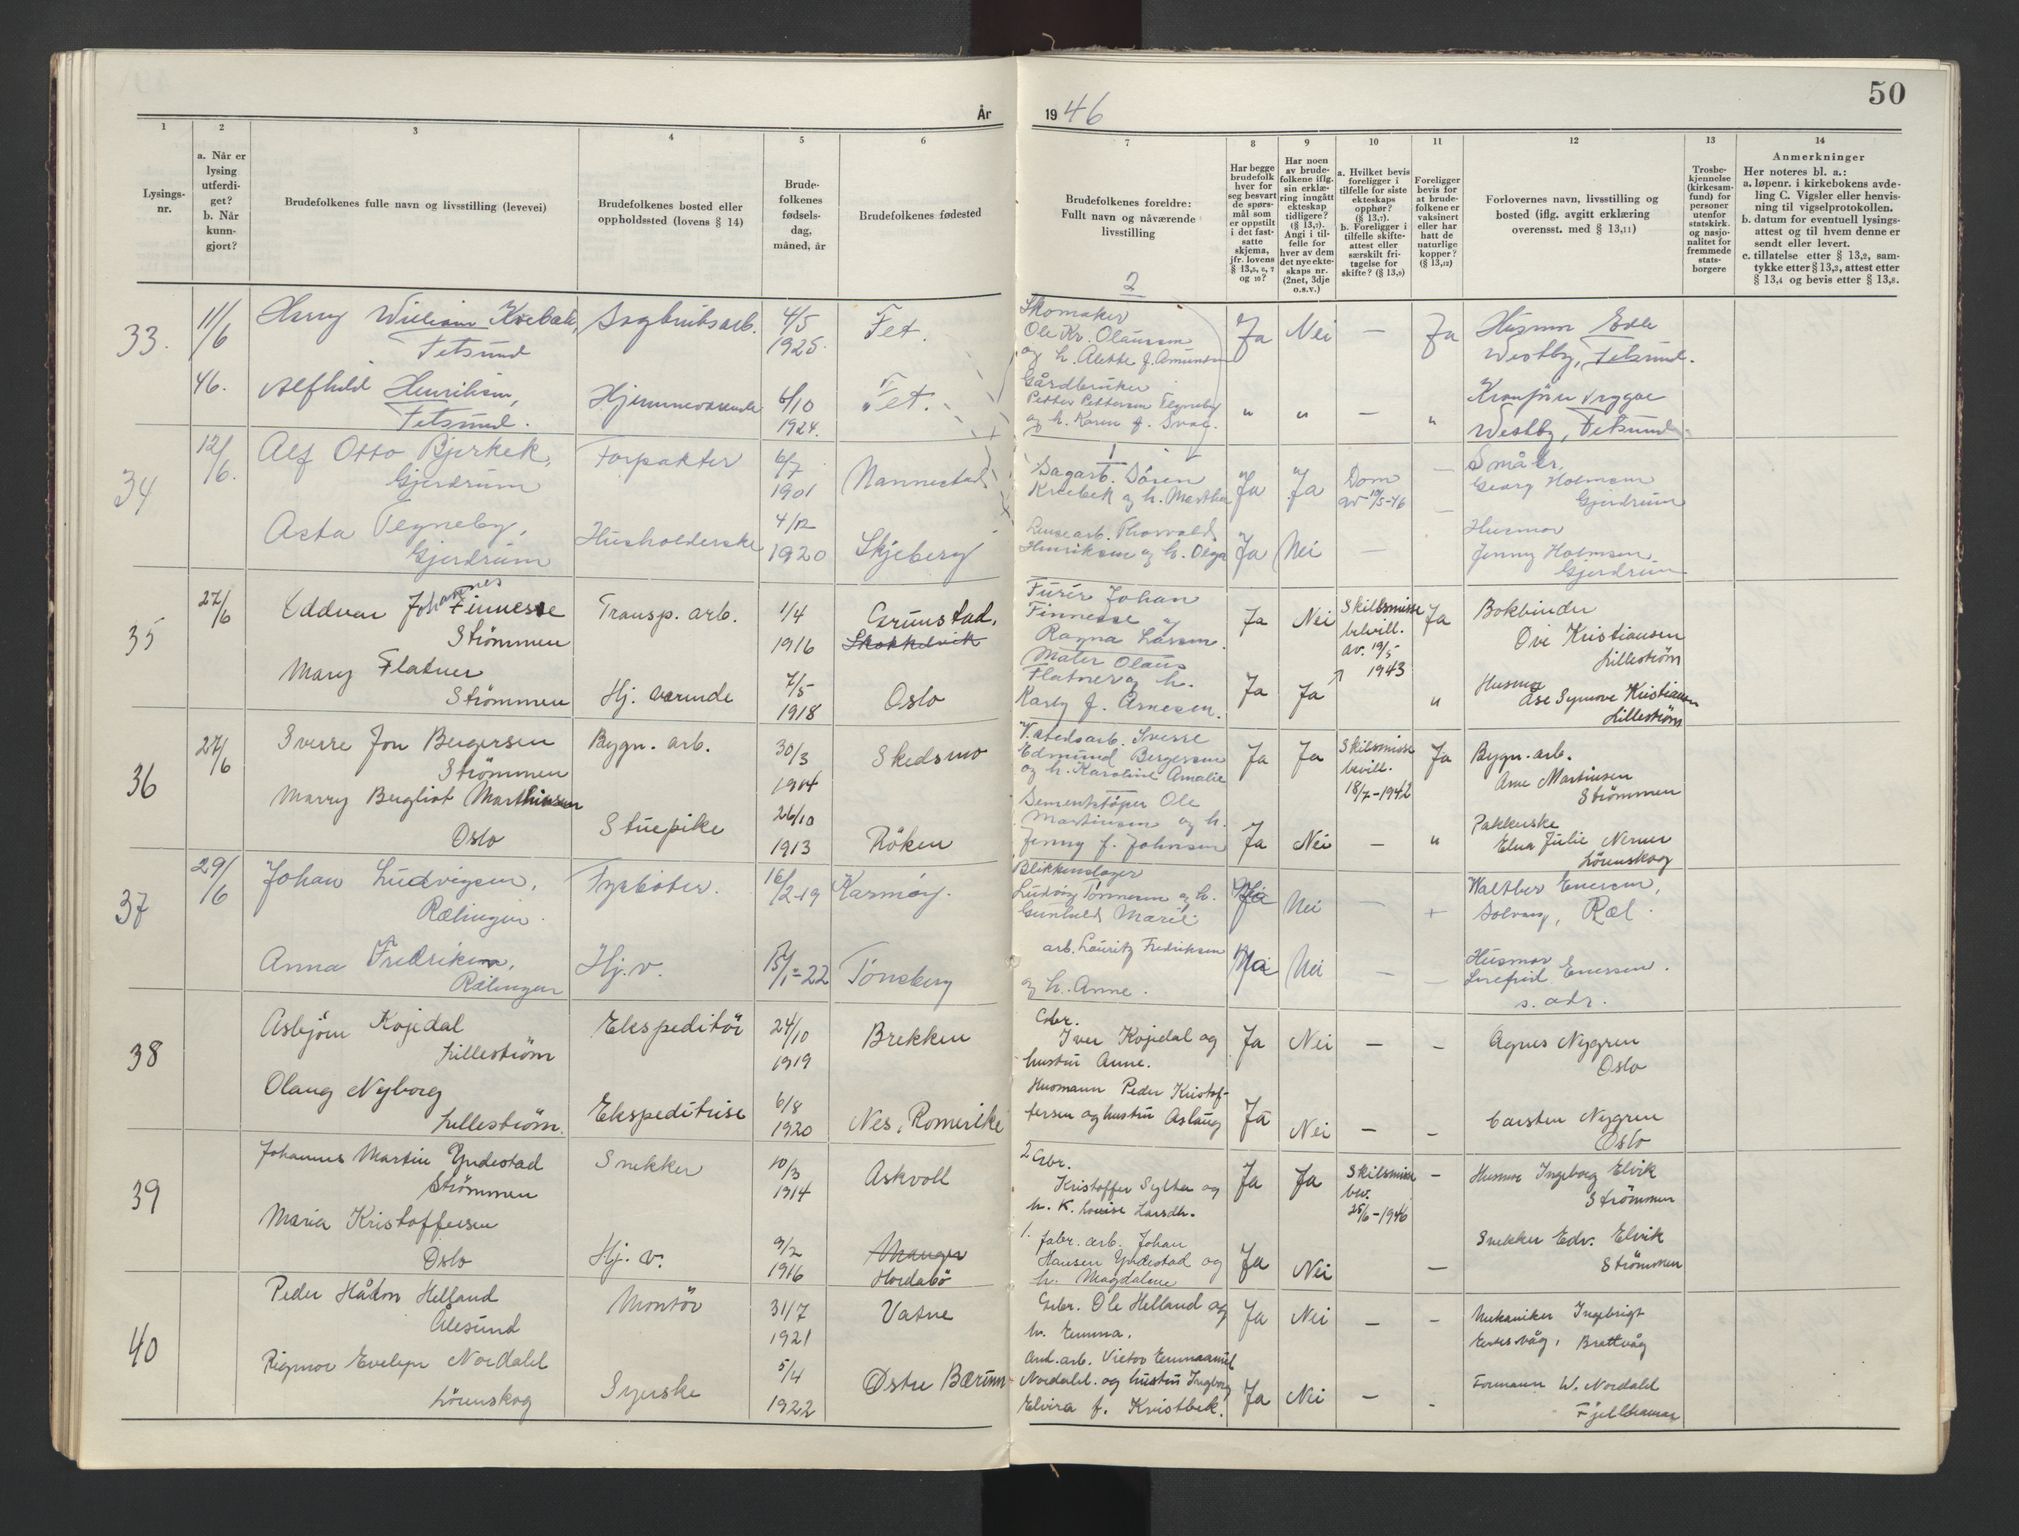 50
År
19 46
1
2
3
4
5
6
7
8
9
10
11
12
13
14
Lysings-
nr.
a. Når er
lysing
utferdi-
get?
b. Når
kunn-
gjort?
Brudefolkenes fulle navn og livsstilling (levevei)
Brudefolkenes bosted eller
oppholdssted (lovens § 14)
Brude-
folkenes
fødsels-
dag,
måned, år
Brudefolkenes fødested
Brudefolkenes foreldre:
Fullt navn og nåværende
livsstilling
Har begge
brudefolk
hver for
seg besvart
de spørs-
mål som
er oppstilt
i det fast-
satte
skjema,
jfr. lovens
§ 13,5, 6, 7
og 10?
Har noen
av brude-
folkene iflg.
sin erklæ-
ring inngått
ekteskap
tidligere?
(§ 13,7).
Angi i til-
felle for
hver av dem
det nye ekte-
skaps nr.
(2net, 3dje
o.s.v.)
a. Hvilket bevis
foreligger i
tilfelle for siste
ekteskaps
opphør?
(§ 13,7).
b. Foreligger i
tilfelle skifte-
attest eller
særskilt fri-
tagelse for
skifte? (§ 13,9)
Foreligger
bevis for
at brude-
folkene er
vaksinert
eller har
hatt de
naturlige
kopper?
(§ 13,12)
Forlovernes navn, livsstilling og
bosted (iflg. avgitt erklæring
overensst. med § 13,11)
Trosbe-
kjennelse
(kirkesam-
fund) for
personer
utenfor
statskirk.
og nasjo-
nalitet for
fremmede
stats-
borgere
Anmerkninger
Her noteres bl. a.:
a. løpenr. i kirkebokens avde-
ling C. Vigsler eller henvis-
ning til vigselprotokollen.
b. datum for eventuell lysings-
attest og til hvem denne er
sendt eller levert.
c. tillatelse etter § 13,2, sam-
tykke etter § 13,3, attest etter
§ 13,4 og bevis etter § 13,8.
2
33. 11/6 Harry William Kvebæk, Sagbruksarb. 4/5 Fet. Skomaker Ja Nei — Ja Husmor Edle
Fetsund 1925. Ole Kr. Olaussen Westby, Fetsund.
og h. Alette f. Amundsen
46. Alfhild Henriksen, Hjemmeværende 6/10 Fet. Gårdbruker " " — "
Fetsund. 1924. Petter Pettersen Tegneby Westby, Fetsund
og h. Karen f. Svae.
1
34 12/6. Alf Otto Bjerkek, Forpakter 6/7 Nannestad Sagarb. Søren Ja Ja Dom — Småbr.
Gjerdrum 1901 Kvebek og h. Marthe av 10/5-46 Georg Holmsen
Gjerdrum
Asta Tegneby, Husholderske 4/12 Skjeberg Thorvald Ja Nei — — Husmor
Gjerdrum 1920 Henriksen og h. Olga Jenny Holmsen
Gjerdrum
35 27/6 Oddvar Johannes Finnesse Transp. arb. 1/4 Grimstad, Furer Johan Ja Nei Skilsmisse Ja Bokbinder
Strömmen 1916 Finnesse og bevill. Ove Kristiansen
Ragna Larsen. av. 19/5 Lillestrøm
1943
Mary Flatner Hj. værende 7/5 Oslo Maler Olaus Ja Ja " Husmor
Strömmen 1918 Flatner og h. Åse Synnove Kristiansen
Karly f. Arnesen. Lillestrøm
36 27/6 Sverre Jon Bergersen Bygn. arb. 30/3 Skedsmo V.stedsarb. Sverre Ja Ja Skilsmisse Ja Bygn. arb.
Strömmen 1904 Edmund Bergersen bevill. Arne Martinsen
og h. Karoline Amalie 18/7-1942 Strömmen
Marry Bergliot Marthinsen Stuepike 26/10 Röken Sementstöper Ole Ja Nei — " Pakkerske
Oslo 1913 Martinsen og h. Elna Julie
Jenny f. Johnsen Lörenskog
37 29/6 Johan Ludvigsen, Fyrböter. 16/2-19 Karmöy. Blikkenslager Ja Nei — + Walther Enersen,
Rælingen. Ludvig Tönnesen og h. Solvang, Ræl.
Gunhild Marie.
Anna Fredriksen, Hj.v. 15/1-22 Tönsberg arb. Lauritz Fredriksen Ja Nei — — Husmor
Rælingen og h. Anne. Enersen.
s. adr.
38 Asbjörn Kojedal Ekspeditör 24/10 Brekken Gbr. Ja Nei — — Agnes Nygren
Lillestrøm 1919 Iver Kojedal og Oslo
hustru Anne.
Olaug Nyborg Ekspeditrise 6/8 Nes, Romerike Husmann Peder Kristof- Ja Nei — — Carsten Nygren
Lillestrøm. 1920 fersen og hustru Aslaug Oslo
39 Johannes Martin Yndestad Snekker 10/3 Askvoll 2 Gbr. Ja Ja Skilsmisse — Husmor Ingeborg Elvik
Strömmen 1914 Kristoffer Sylta og bev. Strömmen
h. K. Lovise Larsdh. 25/6-1946
Maria Kristoffersen Hj. v. 9/2 Manger 1. fabr. arb. Johan Ja Nei — Snekker Edv. Elvik
Oslo 1916 Hordabö Hansen Yndestad og Strömmen
h. Magdalene
40 Peder Håkon Helland Montör 31/7 Vatne Gbr. Ole Helland og Ja Nei — — Mekaniker Ingebrigt
Ålesund 1921 h. Emma. Brattvåg
Rigmor Evelyn Nordahl Syerske 5/4 Østre Bærum And. arb. Victor Emmanuel Ja Nei — - Formann W. Nordahl
Lörenskog 1922 Nordahl. og hustru Ingeborg Fjellhamar
Elvira f. Kvistbek.